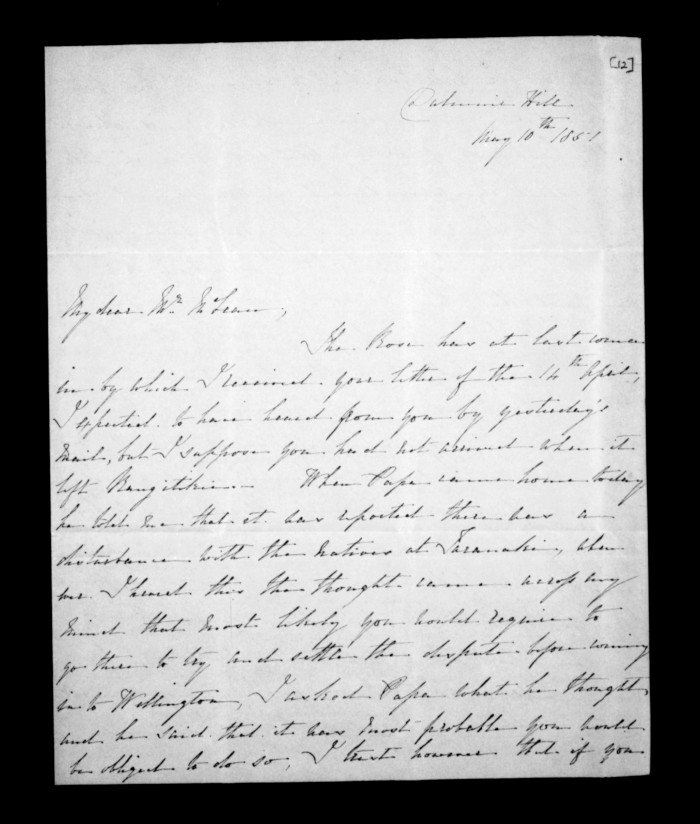 [12]
Dalmuir Hill
May 10th 1851
My dear Mr McLean,
The Rose has at last come
in by which I received your letter of the 14th April,
I expected to have heard from you by yesterday's
mail, but I suppose you had not arrived when it
left Rangitikei. When Papa came home today
he told me that it was reported there was a
disturbance with the natives at Taranaki, when
ever I heard this the thought came across my
mind that most likely you would require to
go there to try and settle the dispute before coming
in to Wellington, I asked Papa what he thought
and he said that it was most probable you would
be obliged to do so, I trust however that if you